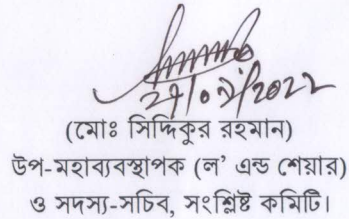 (মোঃ সিদ্দিকুর রহমান)
উপ-মহাব্যবস্থাপক (ল' এন্ড শেয়ার)
ও সদস্য-সচিব, সংশ্লিষ্ট কমিটি।